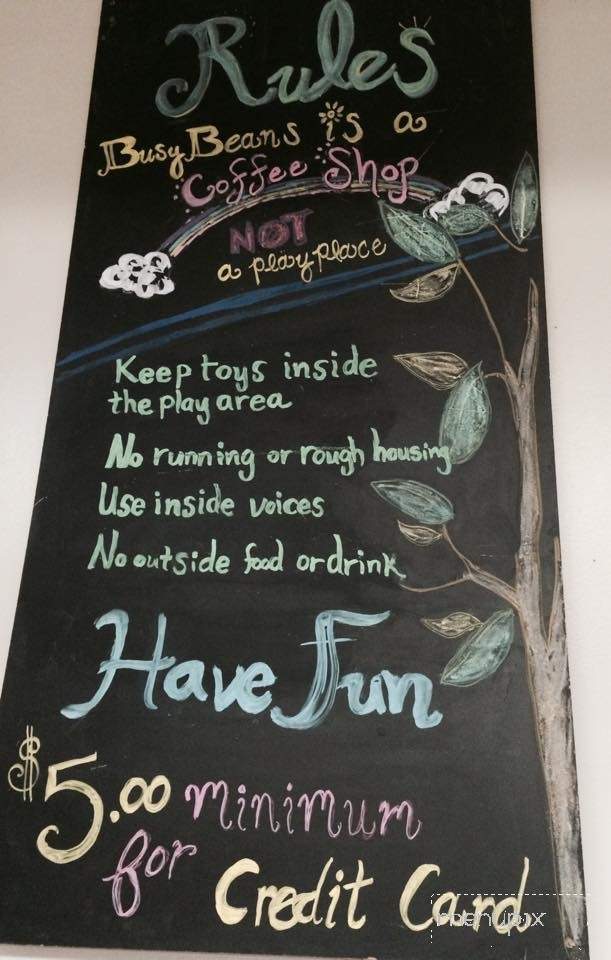 Rules
Busy Beans is a
Coffee Shop
NOT
a play place
Keep toys inside
the play area
No running or rough housing
Use inside voices
No outside food or drink
Have Fun
$5.00 minimum
for
Credit Card
menupix